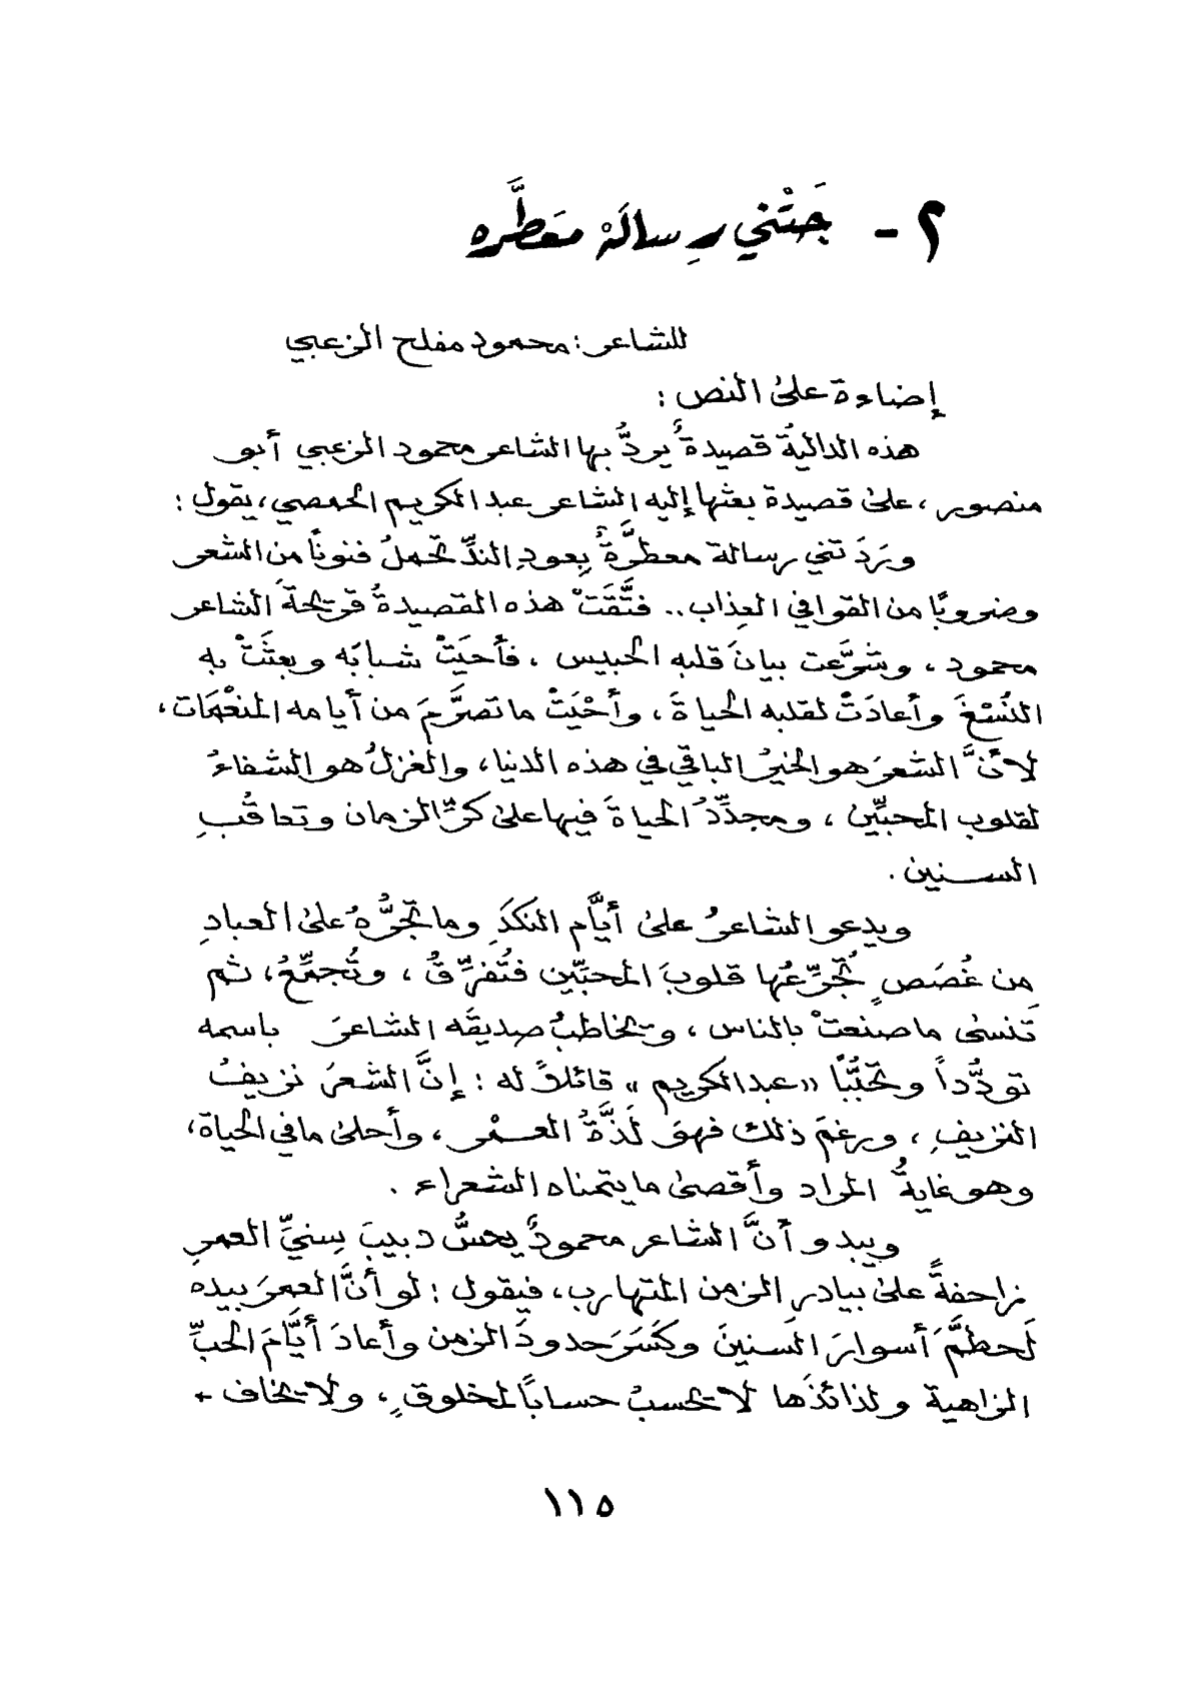 ٢ - جَتْني رِسالَهْ معَطَّره
للشاعر : محمود مفلح الزعبي
إضاءة على النص :
هذه الداليةُ قصيدةٌ يردُّ بها الشاعر محمود الزعبي أبو
منصور ، على قصيدة بعثها إليه الشاعر عبد الكريم الحمصي ، يقول :
ورَدَتني رسالة معطرَّةٌ بِعودِ الندِّ تحملُ فنونًا من الشعر
وضروبًا من القوافي العِذاب .. فتَّقَتْ هذه القصيدةُ قريحةَ الشاعر
محمود ، وشرَّعت بيانَ قلبه الحبيس ، فأحيَتْ شبابَه وبعثَتْ به
النُسْغَ وأعادَتْ لقلبه الحياةَ ، وأحْيَتْ ما تصرَّمَ من أيامه المنعْمَات ،
لأنَّ الشعرَ هو الخيرُ الباقي في هذه الدنيا ، والغزلُ هو الشفاءُ
لقلوب المحبِّين ، ومجدِّدُ الحياةَ فيها على كرِّ الزمان وتعاقُبِ
السنين .
ويدعو الشاعرُ على أيَّام النكَدِ وما تجرُّهُ على العبادِ
مِن غُصَصٍ تُجَرِّعُها قلوبَ المحبِّين فتُفرِّقُ ، وتُجمِّعُ ، ثم
تَنسى ما صنعتْ بالناس ، ويخاطبُ صديقَه الشاعرَ باسمه
تودُّداً وتحبُّبًا «عبد الكريم» قائلاً له : إنَّ الشعرَ نزيفُ
النزيفِ ، ورغمَ ذلك فهوَ لَذَّةُ العمْر ، وأحلى ما في الحياة ،
وهو غايةُ المراد وأقصى ما يتمناه الشعراء .
ويبدو أنَّ الشاعر محمودٌ يحسُّ دبيبَ سِنيِّ العمرِ
زاحفةً على بيادرِ الزمن المتهارب ، فيقول : لو أنَّ العمرَ بيده
لَحطمَّ أسوارَ السنينَ وكسَرَ حدودَ الزمن وأعادَ أيَّامَ الحبِّ
الزاهية ولذائذَها لا تحسبُ حسابًا لمخلوقٍ ، ولا تخاف -
١١٥